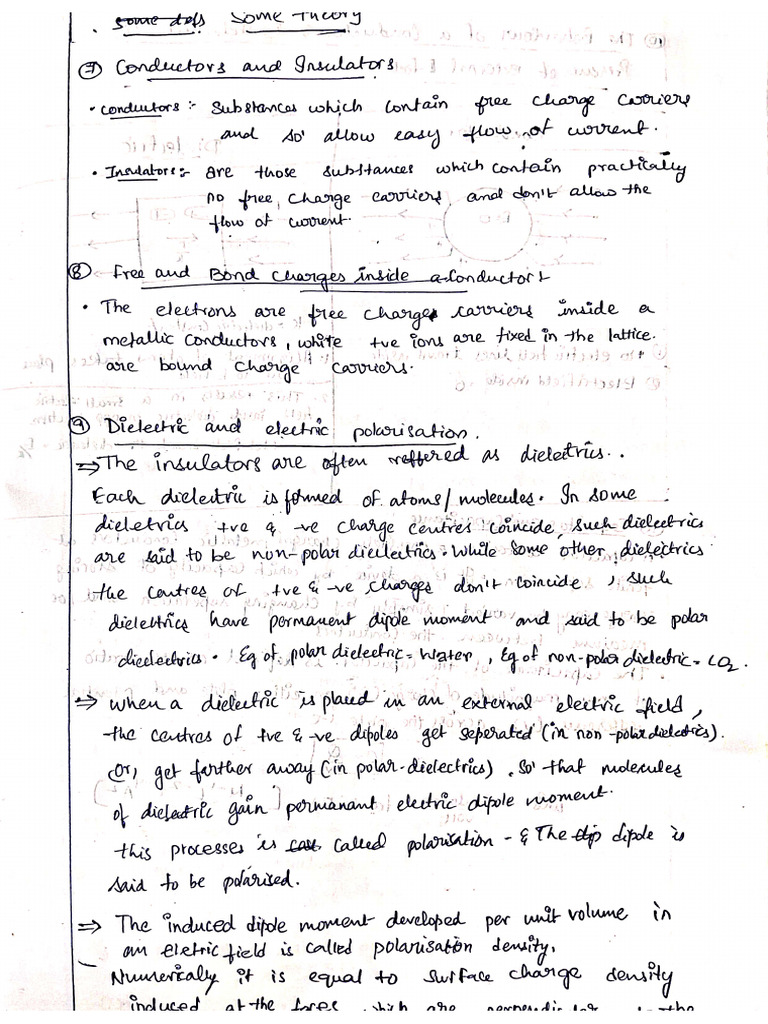 . some defs Some Theory
⑦ Conductors and Insulators
• conductors :- Substances which contain free charge carriers
and so allow easy flow of current.
• Insulators:- are those substances which contain practically
no free charge carriers and don't allow the
flow of current.
⑧ Free and Bond charges inside a conductor
• The electrons are free charge carriers inside a
metallic conductors, white +ve ions are fixed in the lattice.
are bound charge carriers.
⑨ Dielectric and electric polarisation.
⇒ The insulators are often reffered as dieletrics..
Each dielectric is formed of atoms/molecules. In some
dieletrics +ve & -ve charge centres coincide, such dielectrics
are said to be non-polar dielectrics. While some other, dielectrics
the centres of +ve & -ve charges don't coincide, such
dielettrics have permanent dipole moment and said to be polar
dielectrics. Eg of polar dielectric = Water, Eg of non-polar dielectric = CO2.
⇒ when a dielectric is placed in an external electric field,
the centres of +ve & -ve dipoles get seperated (in non-polar dielectrics).
Or, get farther away (in polar-dielectrics). So that molecules
of dielectric gain permanant electric dipole moment.
this processes is called polarisation - & The dip dipole is
said to be polarised.
⇒ The induced dipole moment developed per unit volume in
an eletric field is called polarisation density.
Numerically it is equal to surface charge density
induced at the faces which are perpendicular to the